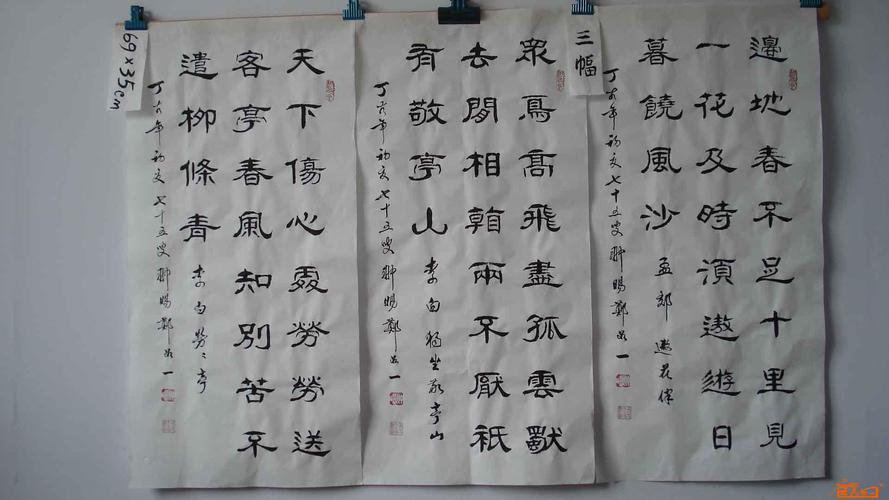 三幅
邊地春不足十里見
一花及時須遨遊日
暮饒風沙 孟郊 邀花伴
丁亥年初夏七十五叟 鄭 一
眾鳥高飛盡孤雲獨
去閒相看兩不厭祇
有敬亭山 李白獨坐敬亭山
丁亥年初夏七十五叟 鄭 一
天下傷心處勞勞送
客亭春風知別苦不
遣柳條青 李白勞〻亭
丁亥年初夏七十五叟 鄭 一
69×35cm